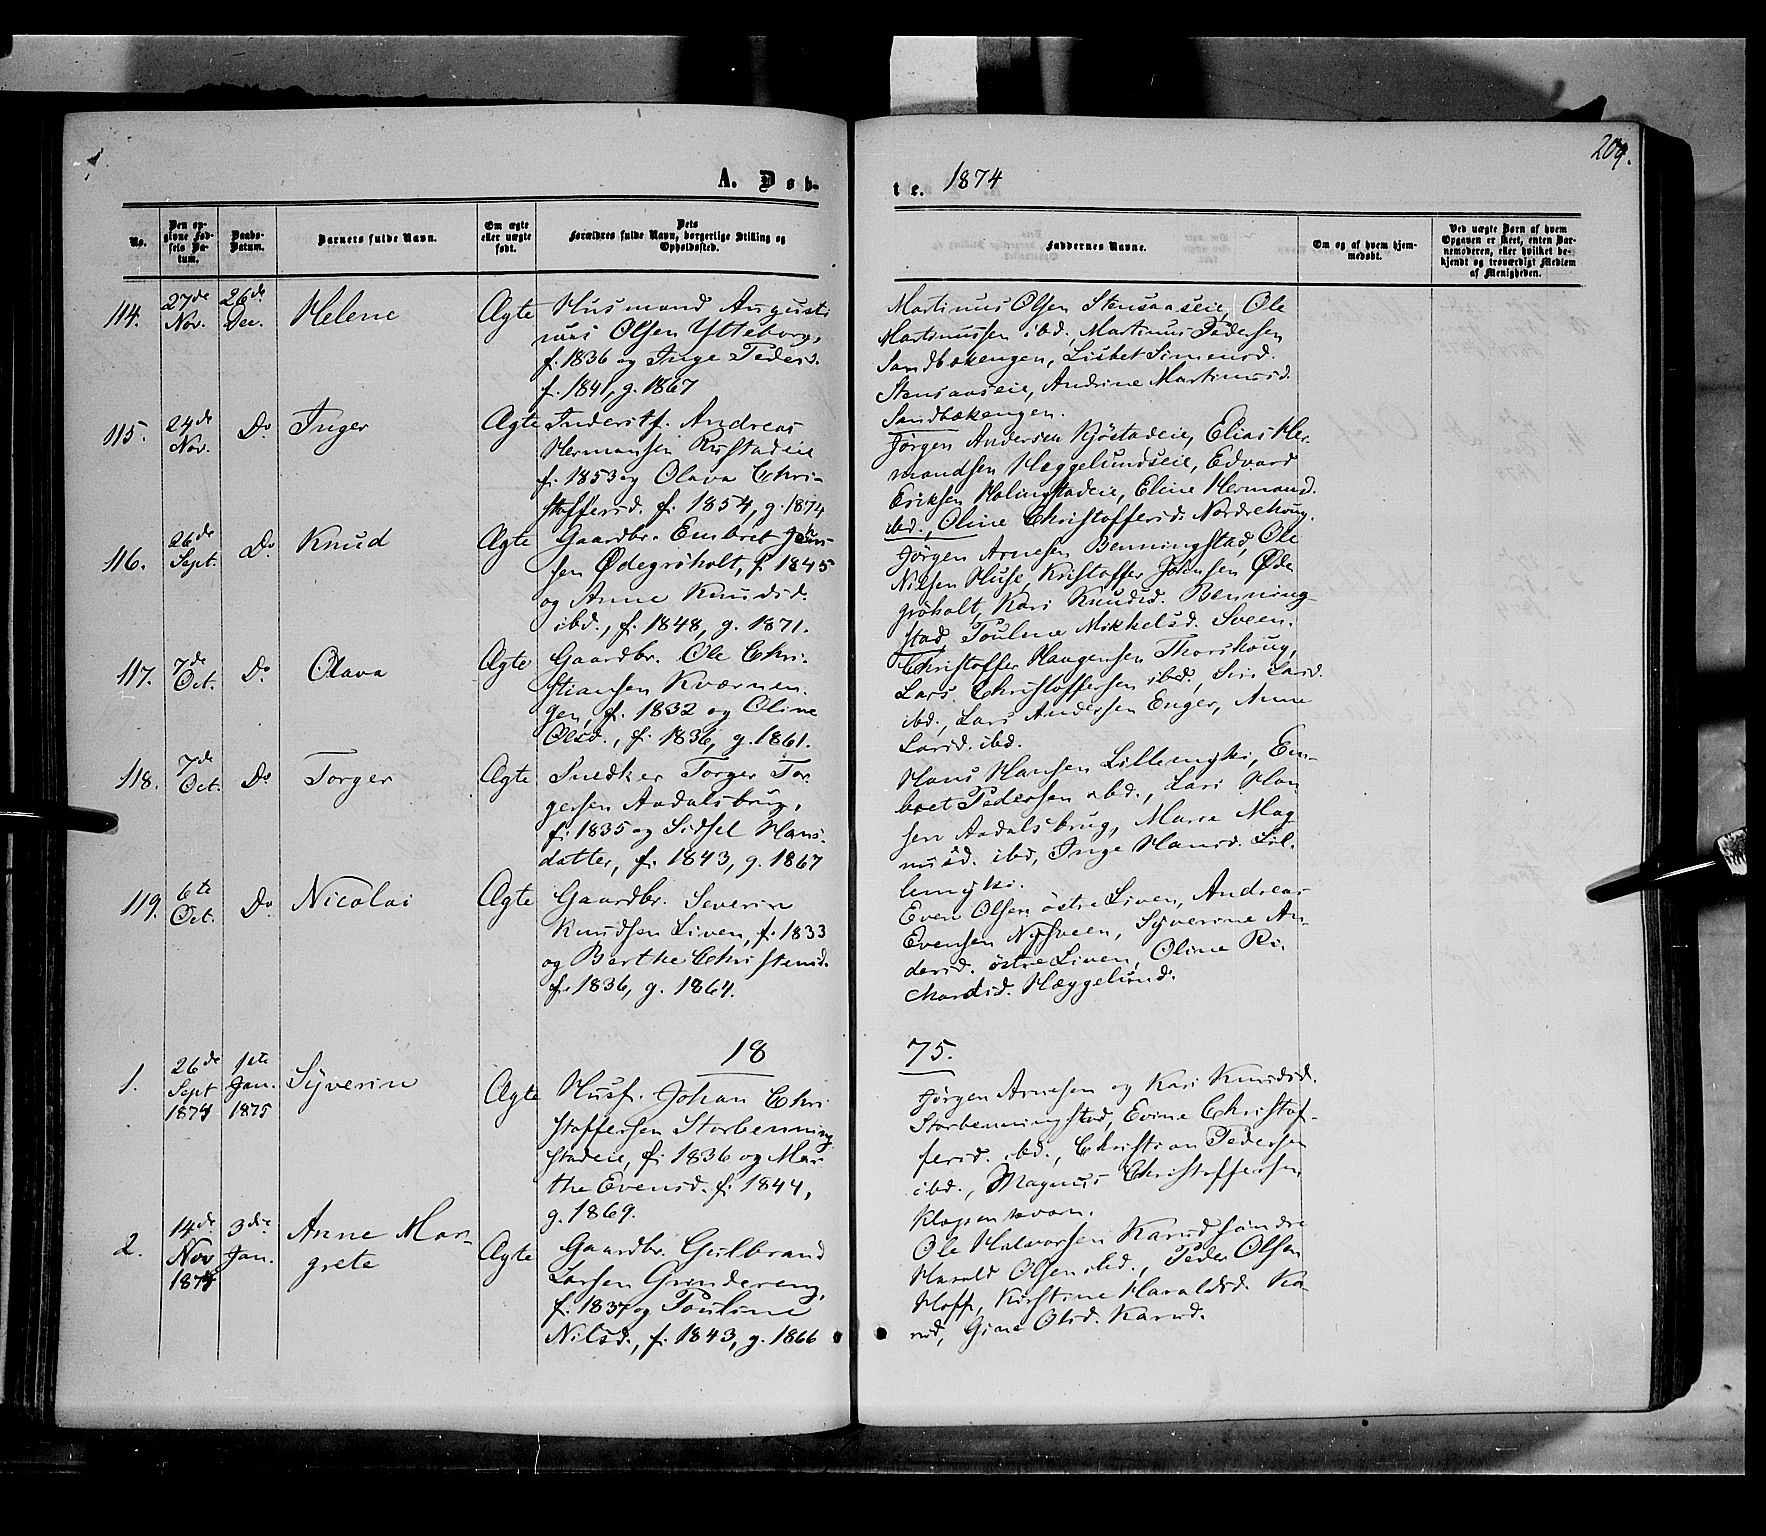 209.
A. Døb-
te. 1874
No.
Den op-
givne Fød-
sels Da-
tum.
Daabs-
Datum.
Barnets fulde Navn.
Om ægte
eller uægte
født.
Dets
Forældres fulde Navn, borgerlige Stilling og
Opholdssted.
Faddernes Navne.
Om og af hvem hjem-
medøbt.
Ved uægte Børn af hvem
Opgaven er skeet, enten Bar-
nemoderen, eller hvilket be-
kjendt og troværdigt Medlem
af Menigheden.
114.
27de
Nov.
26de
Dec.
Helene
Ægte
Husmand Augusti
nus Olsen Ytteborg,
f. 1836 og Inge Pedersd.
f. 1841, g. 1867
Martinus Olsen Stensaaseie, Ole
Martinussen ibd, Martinus Pedersen
Sandbækengen, Lisbet Simensd.
Stensaaseie, Andrine Martinusd.
Sandbækengen.
115.
24de
Nov.
Do
Inger
Ægte
Inderstf. Andreas
Hermansen Rustadeie
f. 1853 og Olava Chri-
stoffersd. f. 1854, g. 1874
Jørgen Andersen Kjöstadeie, Elias Her
mandsen Hæggelundseie, Edvard
Eriksen Holmstadeie, Eline Hermand.
ibd., Oline Christoffersd. Nordrehoug.
116.
26de
Sept.
Do
Knud
Ægte
Gaardbr. Embret Johan-
sen Ødegröholt, f. 1845
og Anne Knudsd.
ibd., f. 1848, g. 1871.
Jörgen Arnesen Benningstad, Ole
Nilsen Huse, Kristoffer Johnsen Øde
gröholt, Kari Knudsd. Benning-
stad, Pouline Mikkelsd. Sveen.
117.
7de
Oct.
Do
Olava
Ægte
Gaardbr. Ole Chri-
stiansen Kværnen-
gen, f. 1832 og Oline
Olsd., f. 1836, g. 1861.
Christoffer Haagensen Thorshoug,
Lars Christoffersen ibd., Siri Larsd.
ibd., Lars Andersen Enger, Anne
Larsd. ibd.
118.
7de
Oct.
Do
Torger
Ægte
Snedker Torger Tor-
gersen Aadalsbrug,
f. 1835 og Sidsel Hans-
datter, f. 1843, g. 1867
Hans Hansen Lillemyhr, Em-
bret Pedersen ibd., Lars Han
sen Aadalsbrug, Maria Mag
nusd. ibd, Inge Hansd. Lil-
lemyhr.
119.
6te
Oct.
Do
Nicolai
Ægte
Gaardbr. Severin
Knudsen Liven, f. 1833
og Berthe Christensd.
f. 1836, g. 1864.
Even Olsen östre Liven, Andreas
Evensen Nysveen, Syverine An-
dersd. östre Liven, Oline Ri-
chardsd. Hæggelund.
18
75.
1.
26de
Sept
1874
1ste
Jan.
1875
Syverin
Ægte
Husf. Johan Chri
stoffersen Storbenning
stadeie, f. 1836 og Mar
the Evensd. f. 1844,
g. 1869.
Jørgen Arnesen og Kari Knudsd.
Storbenningstad, Evine Christof-
fersd. ibd., Christian Pedersen
ibd., Magnus Christoffersen
Klopenkværn.
2.
14de
Nov
1874
3die
Jan.
Anne Mar-
grete
Ægte
Gaardbr. Gulbrand
Larsen Grindereng,
f. 1837 og Pouline
Nilsd., f. 1843, g. 1866
Ole Halvorsen Karud söndre
Harald Olsen ibd., Peder Olsen
Hoff, Kirstine Haraldsd. Ka-
rud, Gine Olsd. Karud.